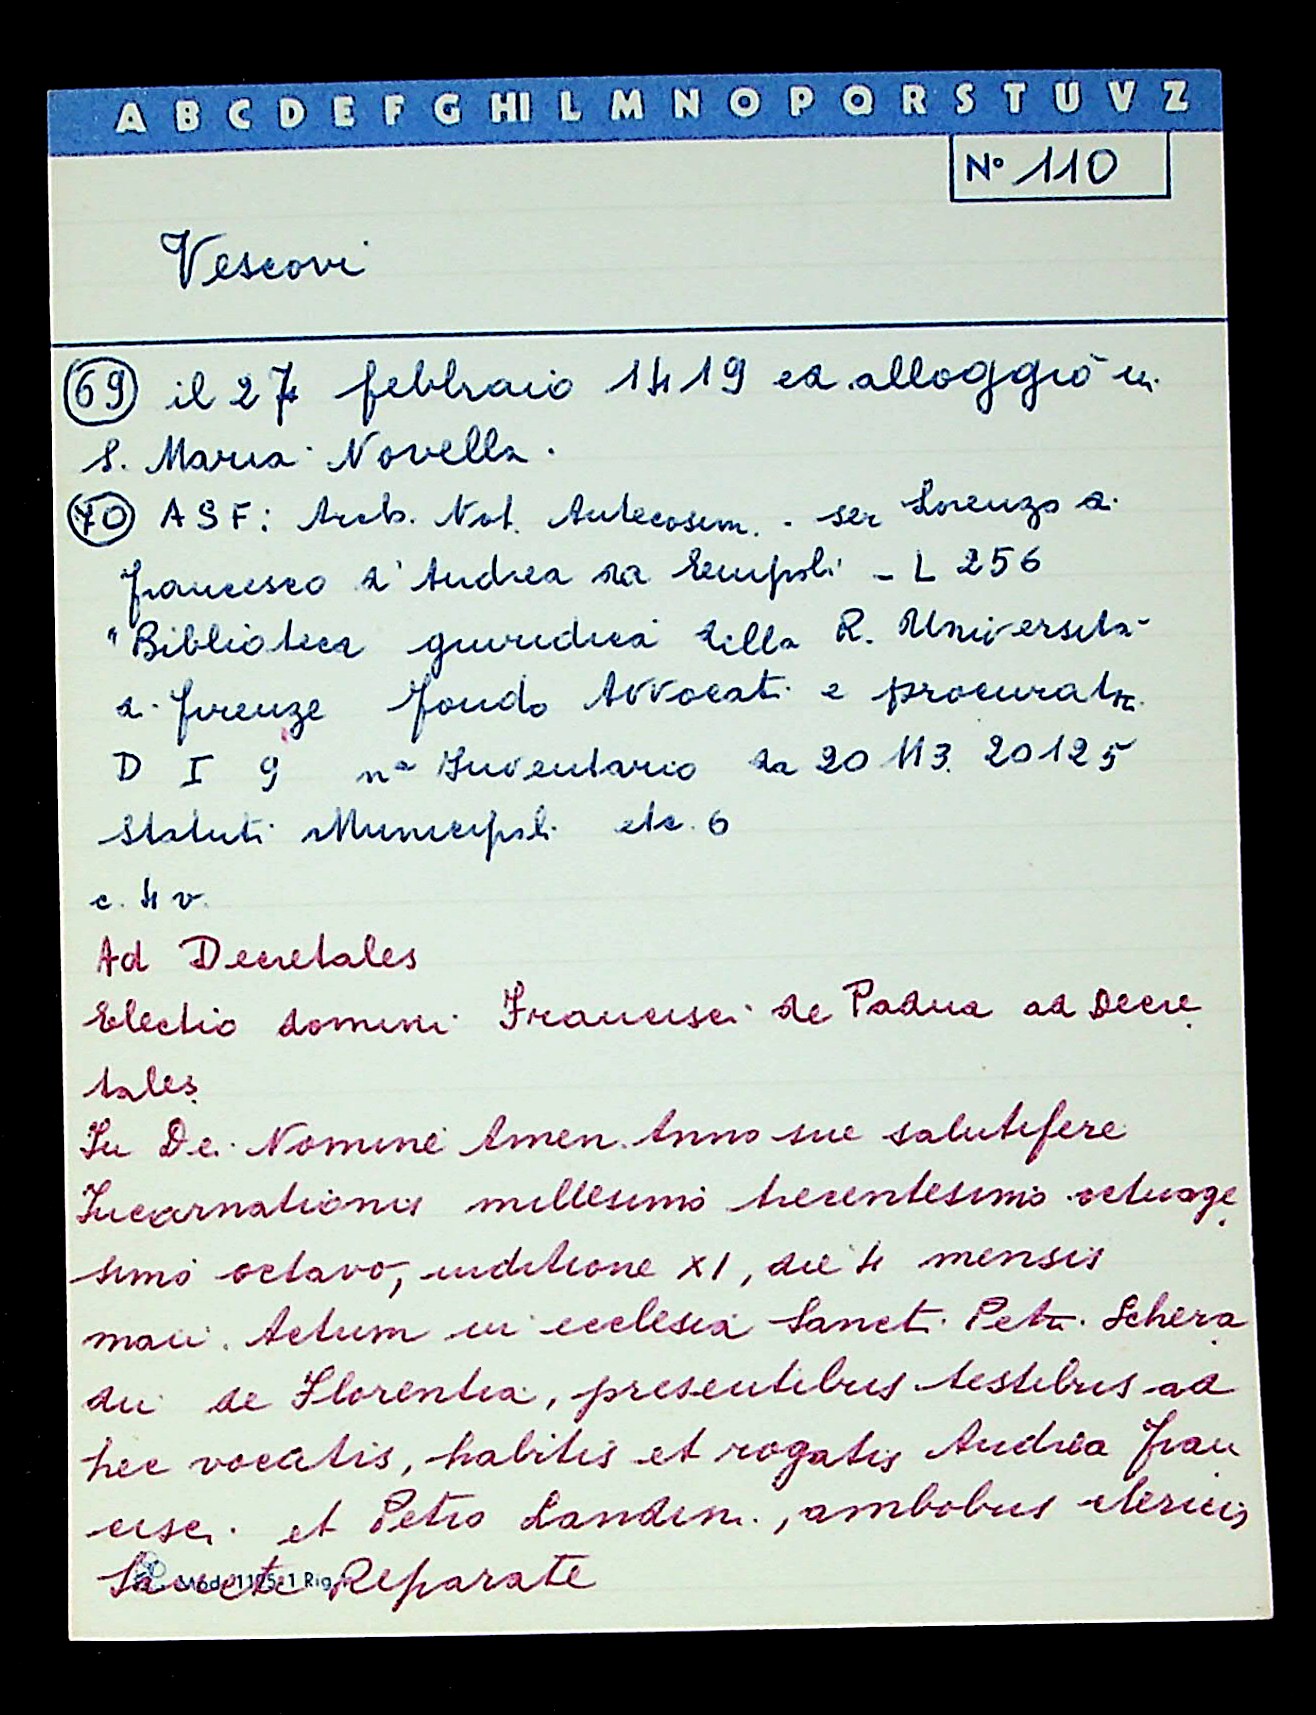 A B C D E F G HI L M N O P Q R S T U V Z
N° 110
Vescovi
69 il 27 febbraio 1419 ed alloggiò in
S. Maria Novella.
70 ASF: Arch. Not. Antecosim. - ser Lorenzo di
francesco d'Andrea da Empoli - L 256
"Biblioteca giuridica della R. Università
di firenze fondo Avvocati e procurat
D I 9 n° Inventario da 20113. 20125
Statuti Municipali etc. 6
c. 4 v.
Ad Decretales
Electio domini Francisci de Padua ad Decre
tales
In Dei Nomine Amen. Anno sue salutifere
Incarnationis millesimo trecentesimo octuage
simo octavo, inditione XI, die 4 mensis
maii. Actum in ecclesia Sancti Petri Schera
dii de Florentia, presentibus testibus ad
hec vocatis, habitis et rogatis Andrea fran
cisci et Petro Landini, ambobus clericis
Sancte Reparate